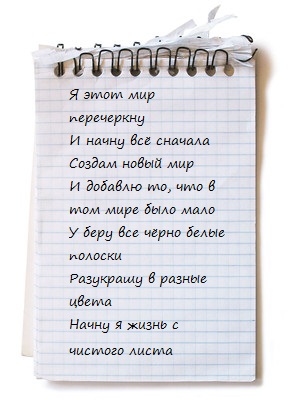 Я этот мир
перечеркну
И начну всё сначала
Создам новый мир
И добавлю то, что в
том мире было мало
У беру все чёрно белые
полоски
Разукрашу в разные
цвета
Начну я жизнь с
чистого листа